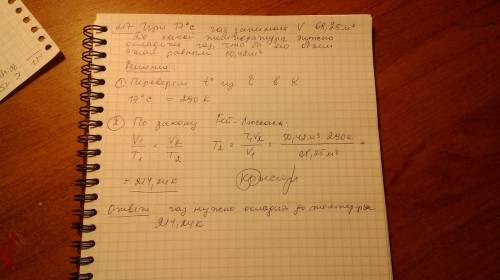 217 При 17°C газ занимает V 68,25 м³
До какой температуры нужно
охладить газ, что бы его объем
стал равным 50,42 м³
Решение
① Переведем t° из °C в K
17°C = 290 K
② По закону Гей-Люссака:
V₁/T₁ = V₂/T₂ T₂ = T₁V₂/V₁ = 50,42м³ · 290K/68,25м³ =
= 214,24K
Ответ: газ нужно охладить до температуры
214,24K